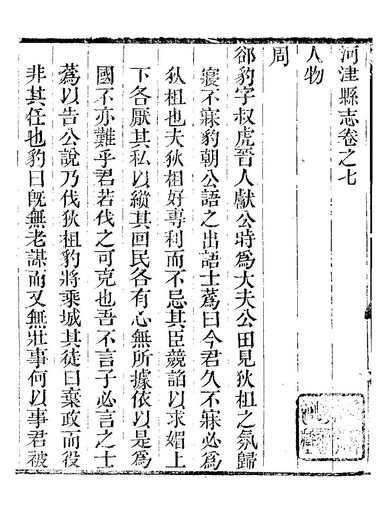 河津縣志卷之七
人物
周
郤豹字叔虎晉人獻公時爲大夫公田見狄柤之氛歸
寢不寐豹朝公語之出語士蒍曰今君久不寐必爲
狄柤也夫狄柤好專利而不忌其臣競諂以求媚上
下各厭其私以縱其回民各有心無所據依以是爲
國不亦難乎君若伐之可克也吾不言子必言之士
蒍以告公說乃伐狄柤豹將乘城其徒曰棄政而役
非其任也豹曰旣無老謀而又無壯事何以事君被